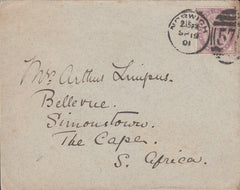 NORWICH
2.15 PM
SP 19
01
575
Mrs Arthur Limpus.
Bellevue.
Simonstown.
The Cape.
S. Africa.